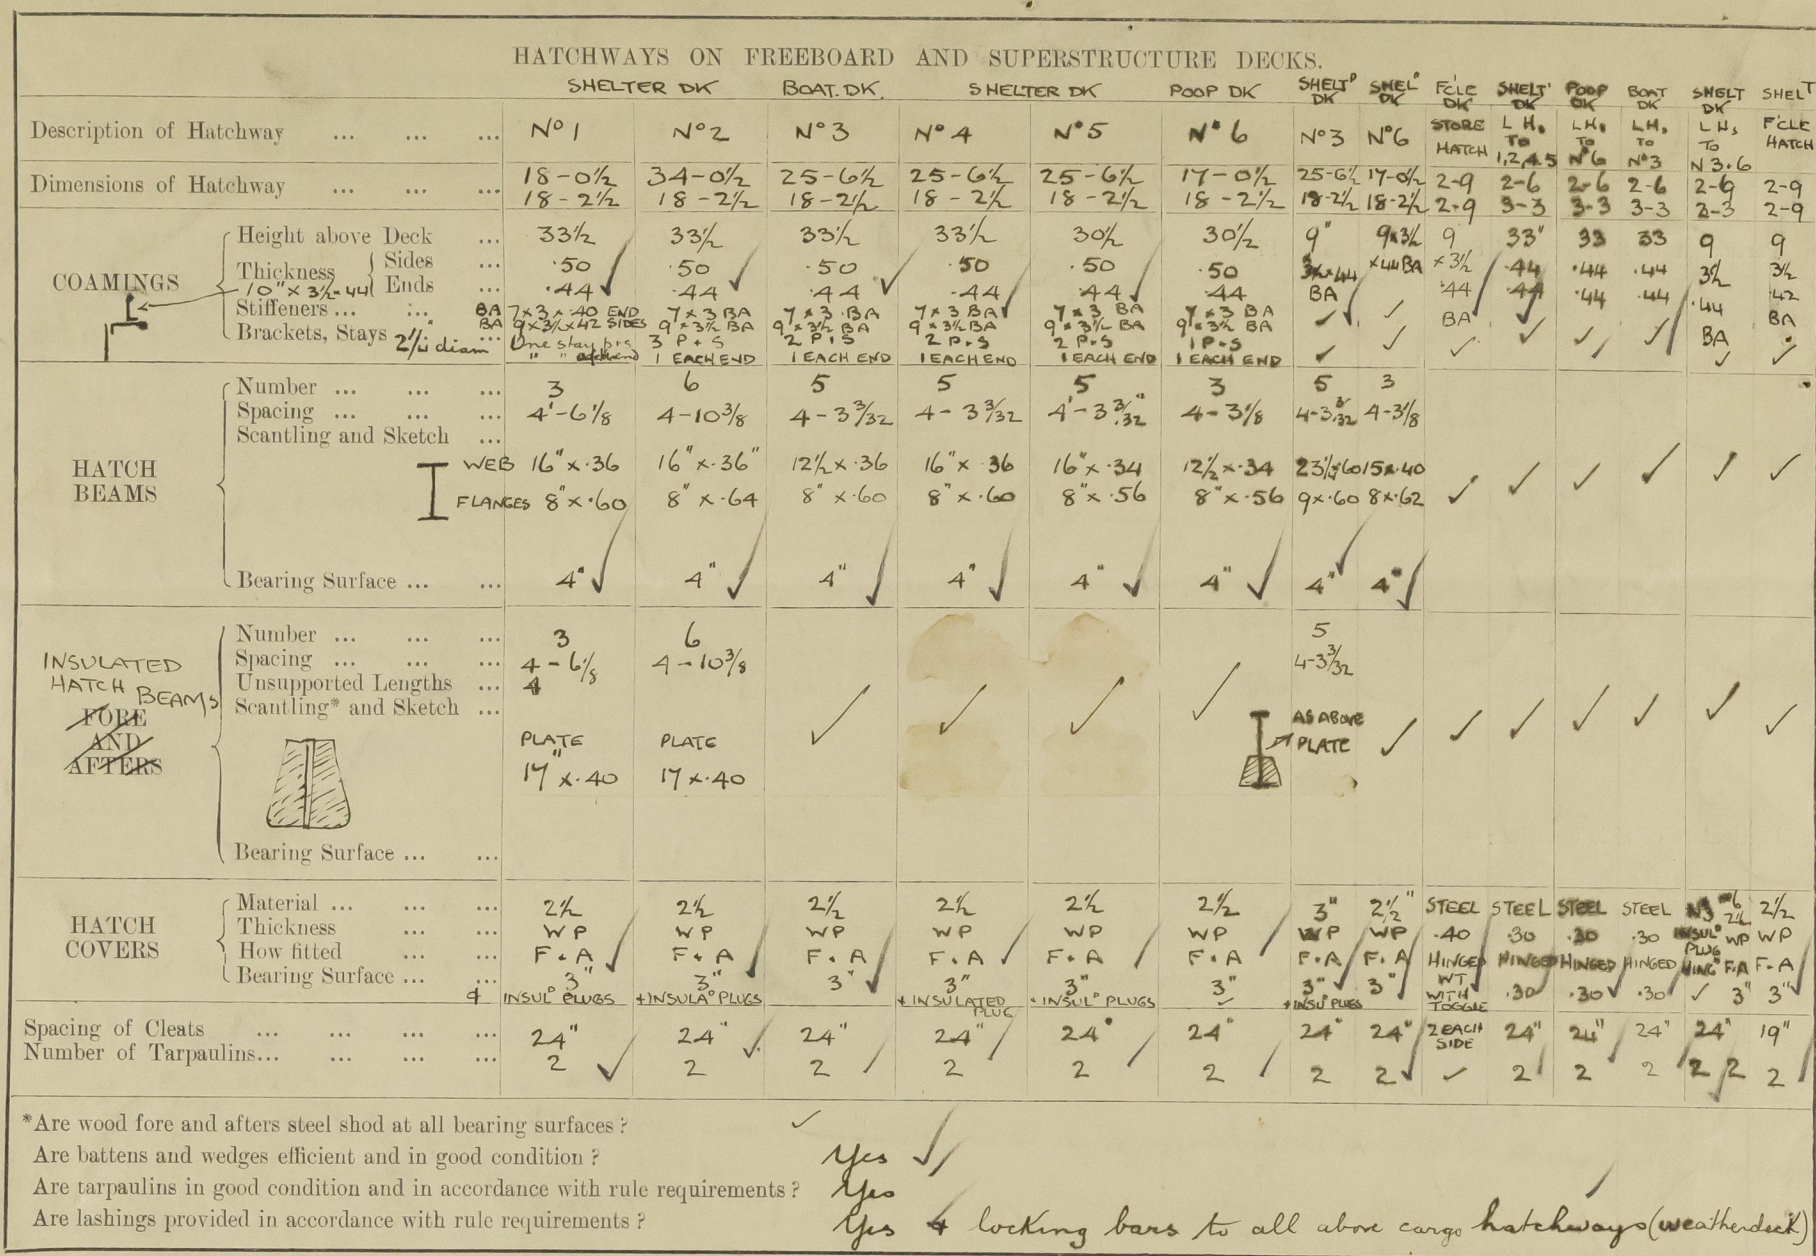 HATCHWAYS ON FREEBOARD AND SUPERSTRUCTURE DECKS.
SHELTER DK BOAT. DK. SHELTER DK POOP DK SHELTD DK SHELD DK F'CLE DK SHELT' DK POOP DK BOAT DK SHELT DK SHELT
Description of Hatchway ... ... ... No 1 No 2 No 3 No 4 No 5 No 6 No 3 No 6 STORE HATCH L H. TO 1,2,4.5 L H. TO No 6 L H. TO No 3 L H. TO N 3.6 F'CLE HATCH
Dimensions of Hatchway ... ... ... 18-0½ 34-0½ 25-6½ 25-6½ 25-6½ 17-0½ 25-6½ 17-0½ 2-9 2-6 2-6 2-6 2-6 2-9
18-2½ 18-2½ 18-2½ 18-2½ 18-2½ 18-2½ 18-2½ 18-2½ 2-9 3-3 3-3 3-3 3-3 2-9
COAMINGS
Height above Deck ... 33½ 33½ 33½ 33½ 30½ 30½ 9" 9×3½ 9 33" 33 33 9 9
Thickness Sides ... .50 .50 .50 .50 .50 .50 3½×.44 ×.44 BA ×3½ .44 .44 .44 3½ 3½
10" × 3½ .44 Ends ... .44 .44 .44 .44 .44 .44 BA .44 .44 .44 .44 .44 .42
Stiffeners ... ... BA 7×3×.40 END 7×3 BA 7×3 BA 7×3 BA 7×3 BA 7×3 BA BA BA BA
BA 9×3½×.42 SIDES 9×3½ BA 9×3½ BA 9×3½ BA 9×3½ BA 9×3½ BA
Brackets, Stays 2¼" diam ... One stay p+s 3 P+S 2 P+S 2 P+S 2 P+S 1 P+S
" " each end 1 EACH END 1 EACH END 1 EACH END 1 EACH END 1 EACH END
HATCH BEAMS
Number ... ... ... 3 6 5 5 5 3 5 3
Spacing ... ... ... 4'-6⅛ 4-10⅜ 4-3 3/32 4-3 3/32 4'-3 3/32" 4-3⅛ 4-3 3/32 4-3⅛
Scantling and Sketch ...
WEB 16"×.36 16"×.36" 12½×.36 16"×.36 16"×.34 12½×.34 23½×.60 15×.40
FLANGES 8"×.60 8"×.64 8"×.60 8"×.60 8"×.56 8"×.56 9×.60 8×.62
Bearing Surface ... ... 4" 4" 4" 4" 4" 4" 4" 4"
INSULATED HATCH BEAMS
FORE AND AFTERS
Number ... ... ... 3 6 5
Spacing ... ... ... 4-6⅛ 4-10⅜ 4-3 3/32
Unsupported Lengths ... 4
Scantling* and Sketch ...
PLATE PLATE AS ABOVE
17"×.40 17×.40 PLATE
Bearing Surface ... ...
HATCH COVERS
Material ... ... ... 2½ 2½ 2½ 2½ 2½ 2½ 3" 2½" STEEL STEEL STEEL STEEL N3 6 2½ 2½
Thickness ... ... WP WP WP WP WP WP WP WP .40 .30 .30 .30 INSULD PLUG WP WP
How fitted ... ... F.A F.A F.A F.A F.A F.A F.A F.A HINGED HINGED HINGED HINGED HINGD F.A F.A
Bearing Surface ... ... 3" 3" 3" 3" 3" 3" 3" 3" WT WITH TOGGLE .30 .30 .30 3" 3"
+ INSULD PLUGS + INSULAD PLUGS + INSULATED PLUG + INSULD PLUGS + INSULD PLUGS
Spacing of Cleats ... ... ... 24" 24" 24" 24" 24" 24" 24" 24" 2 EACH SIDE 24" 24" 24" 24" 19"
Number of Tarpaulins... ... ... ... 2 2 2 2 2 2 2 2 2 2 2 2 2 2
*Are wood fore and afters steel shod at all bearing surfaces?
Are battens and wedges efficient and in good condition? Yes
Are tarpaulins in good condition and in accordance with rule requirements? Yes
Are lashings provided in accordance with rule requirements? Yes + locking bars to all above cargo hatchways (weatherdeck)